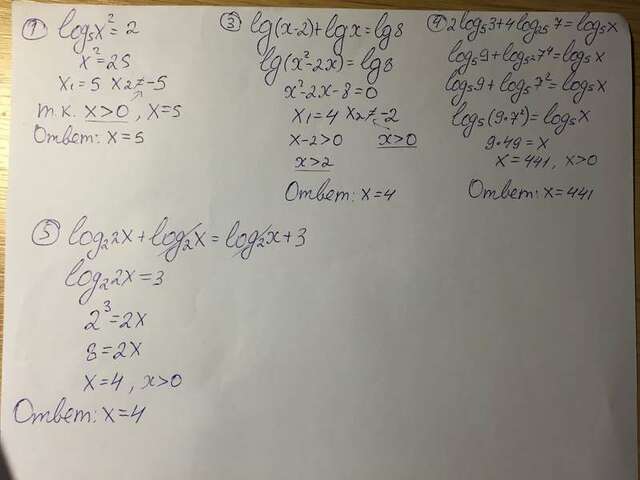 ① log₅x² = 2
x² = 25
x₁ = 5 x₂ ≠ -5
т.к. x>0, x=5
Ответ: x=5
③ lg(x-2)+lgx=lg8
lg(x²-2x)=lg8
x²-2x-8=0
x₁=4 x₂≠-2
x-2>0 x>0
x>2
Ответ: x=4
④ 2log₅3+4log₂₅7=log₅x
log₅9+log₅²7⁴=log₅x
log₅9+log₅7²=log₅x
log₅(9·7²)=log₅x
9·49=x
x=441, x>0
Ответ: x=441
⑤ log₂2x+log₂x=log₂x+3
log₂2x=3
2³=2x
8=2x
x=4, x>0
Ответ: x=4